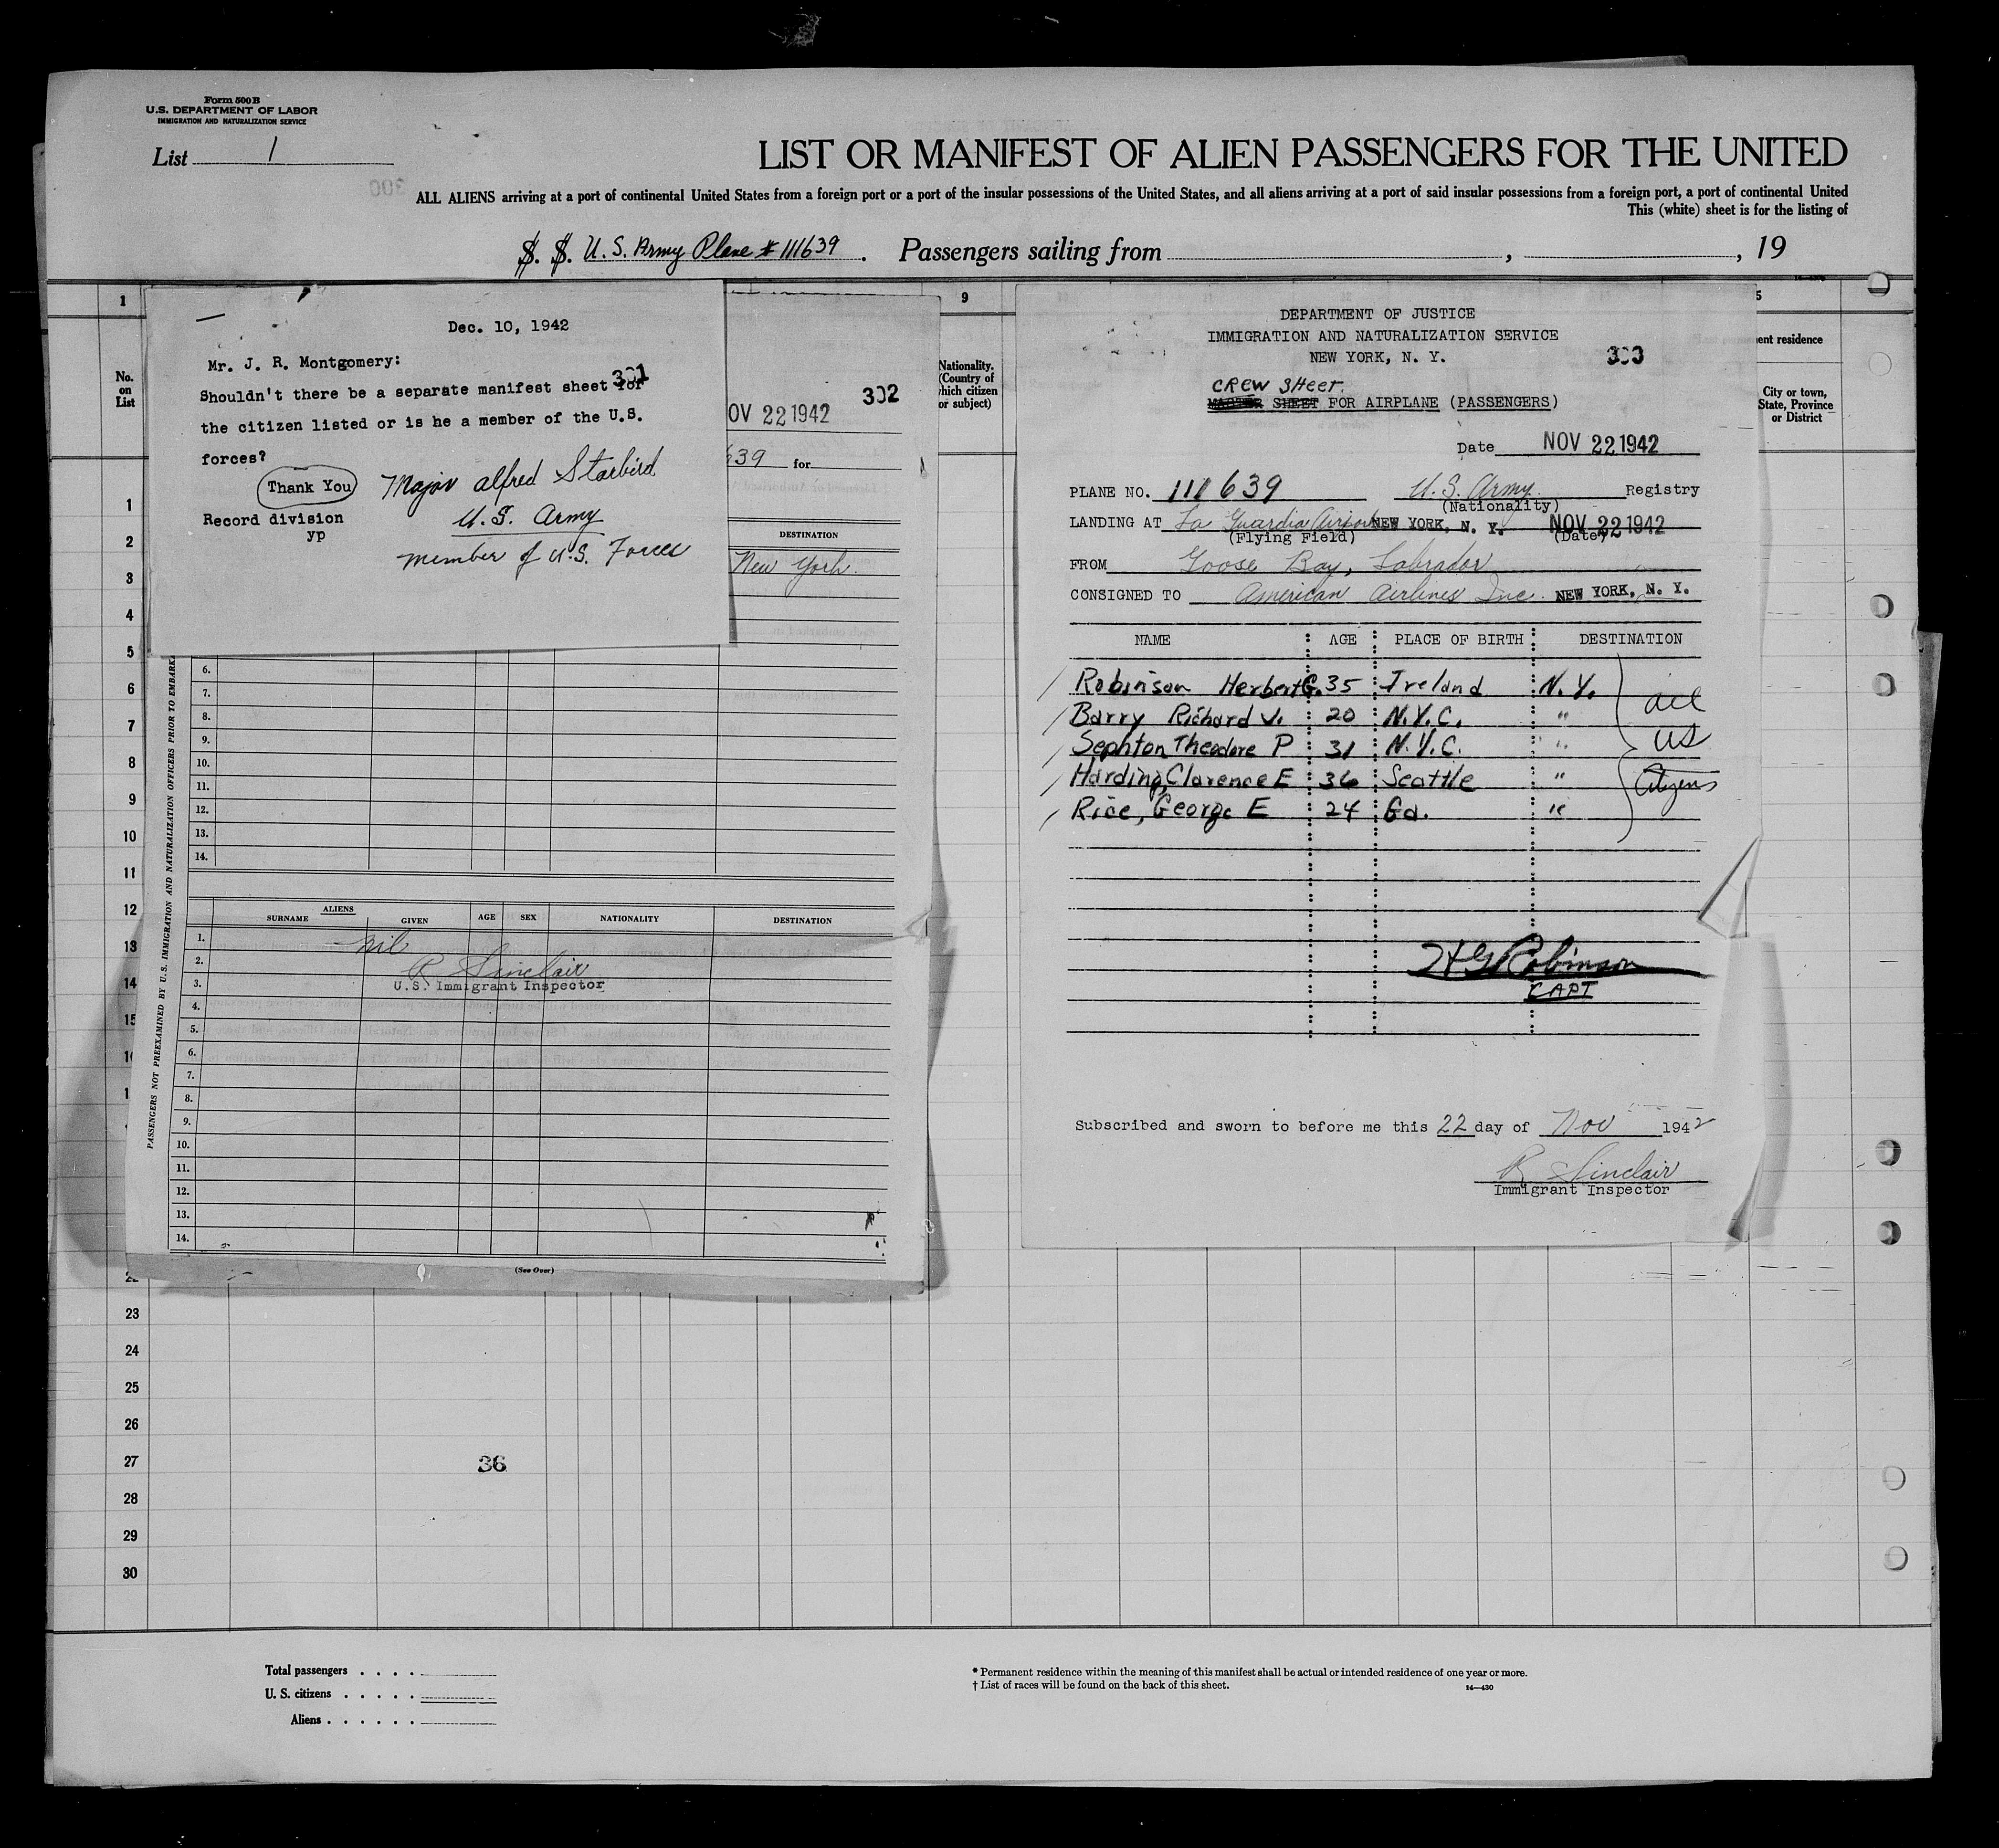 Form 500B
U.S. DEPARTMENT OF LABOR
IMMIGRATION AND NATURALIZATION SERVICE
List 1
300
LIST OR MANIFEST OF ALIEN PASSENGERS FOR THE UNITED
ALL ALIENS arriving at a port of continental United States from a foreign port or a port of the insular possessions of the United States, and all aliens arriving at a port of said insular possessions from a foreign port, a port of continental United
This (white) sheet is for the listing of
S. S. U. S. Army Plane # 111639 . Passengers sailing from , , 19
1
No.
on
List
1
2
3
4
5
6
7
8
9
10
11
12
13
14
15
23
24
25
26
27
28
29
30
36
Dec. 10, 1942
Mr. J. R. Montgomery:
301
Shouldn't there be a separate manifest sheet for
the citizen listed or is he a member of the U.S.
forces?
Thank You
Record division
yp
Major alfred Starbird
U.S. Army
member of U.S. Forces
302
OV 22 1942
639 for
DESTINATION
New York.
PASSENGERS NOT PREEXAMINED BY U. S. IMMIGRATION AND NATURALIZATION OFFICERS PRIOR TO EMBARK
6.
7.
8.
9.
10.
11.
12.
13.
14.
ALIENS
SURNAME GIVEN AGE SEX NATIONALITY DESTINATION
1. - nil
2. R Sinclair
3. U.S. Immigrant Inspector
4.
5.
6.
7.
8.
9.
10.
11.
12.
13.
14.
(See Over)
9
Nationality.
(Country of
which citizen
or subject)
DEPARTMENT OF JUSTICE
IMMIGRATION AND NATURALIZATION SERVICE
NEW YORK, N. Y.
303
CREW SHEET.
MASTER SHEET FOR AIRPLANE (PASSENGERS)
Date NOV 22 1942
PLANE NO. 111639 U.S. Army Registry
(Nationality)
LANDING AT La Guardia Airport NEW YORK, N. Y. NOV 22 1942
(Flying Field) (Date)
FROM Goose Bay, Labrador
CONSIGNED TO American Airlines Inc. NEW YORK, N. Y.
NAME AGE PLACE OF BIRTH DESTINATION
Robinson Herbert G. 35 Ireland N.Y.
Barry Richard J. 20 N.Y.C. "
Sephton Theodore P 31 N.Y.C. "
Harding, Clarence E 36 Seattle "
Rice, George E 24 Ga. "
all
US
Citizens
H G Robinson
CAPT
Subscribed and sworn to before me this 22 day of Nov 1942
R Sinclair
Immigrant Inspector
5
ent residence
City or town,
State, Province
or District
Total passengers . . . .
U. S. citizens . . . . .
Aliens . . . . . .
* Permanent residence within the meaning of this manifest shall be actual or intended residence of one year or more.
† List of races will be found on the back of this sheet.
14—430